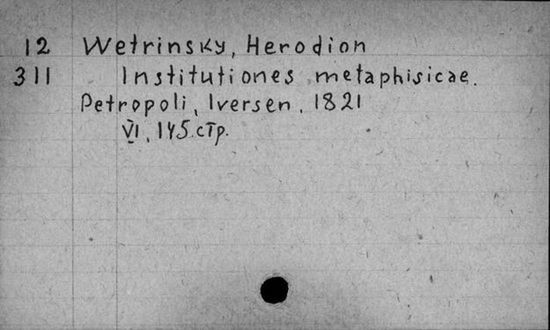 12 Wetrinsky, Herodion
311 Institutiones metaphisicae.
Petropoli, Iversen, 1821
VI, 145 стр.